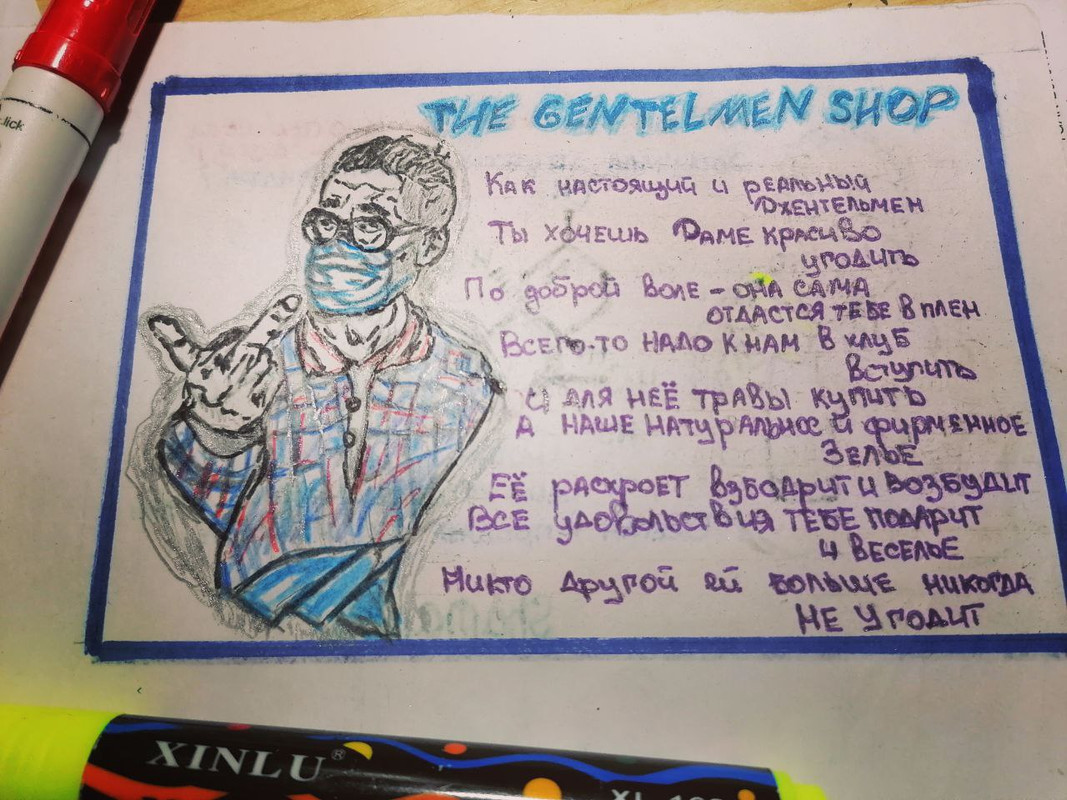 THE GENTELMEN SHOP
Как настоящий и реальный
Джентельмен
Ты хочешь Даме красиво
угодить
По доброй воле - она сама
отдастся тебе в плен
Всего-то надо к нам в клуб
вступить
И для неё травы купить
А наше натуральное и фирменное
Зелье
Её раскроет взбодрит и возбудит
Все удовольствия тебе подарит
и веселье
Никто другой ей больше никогда
не угодит
click
XINLU®